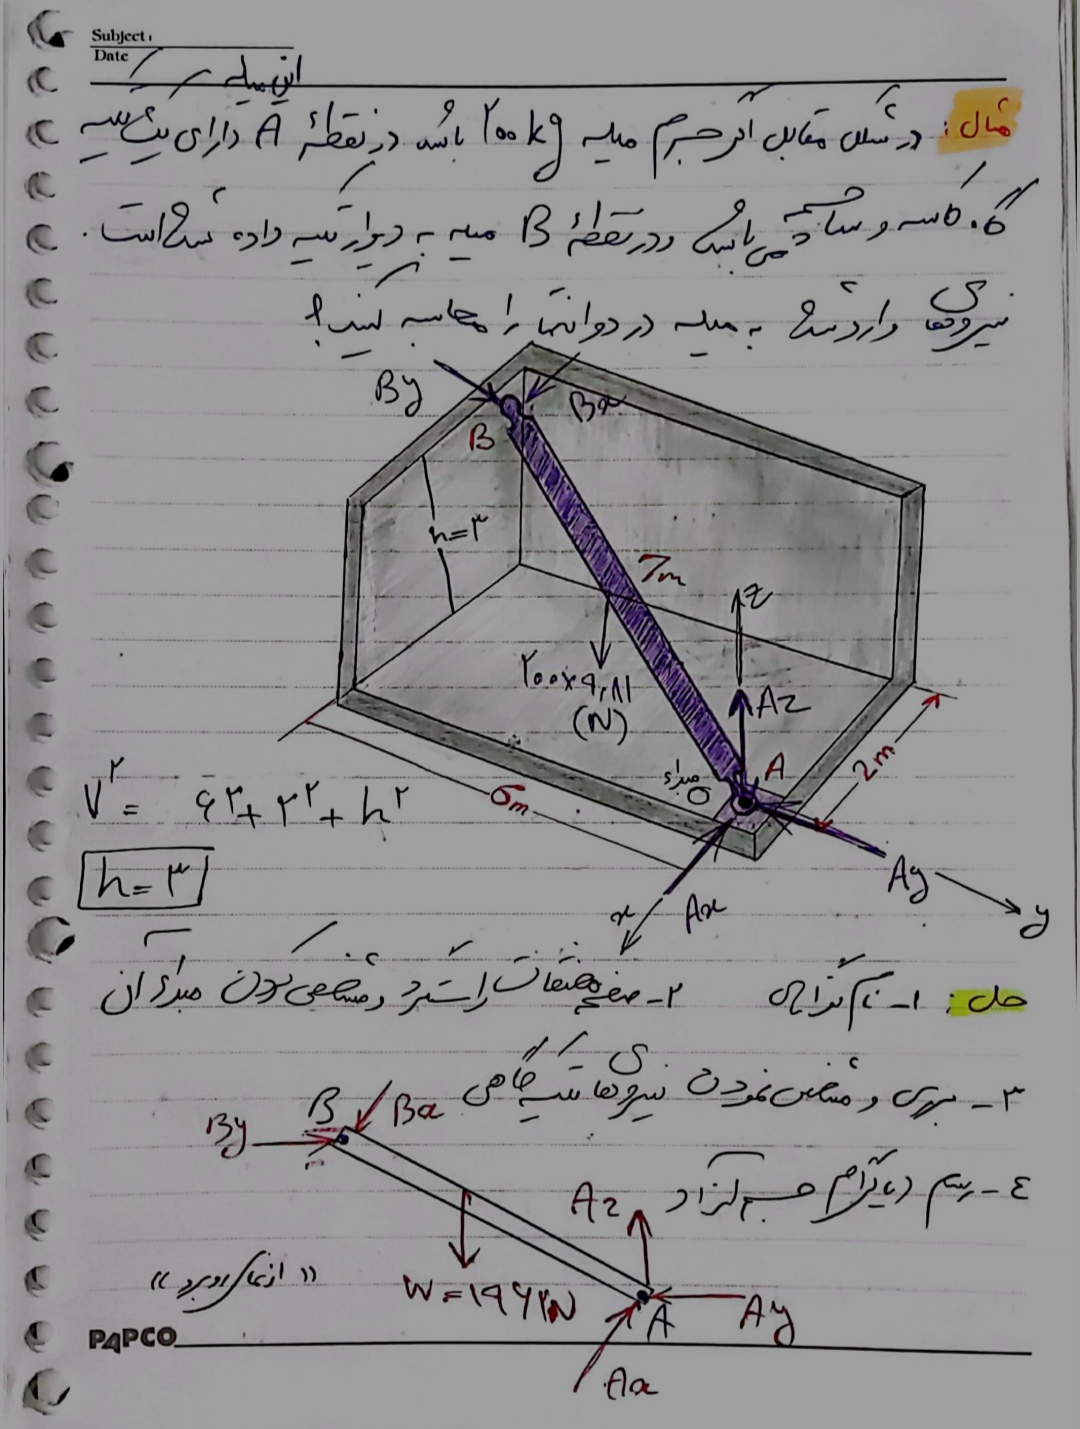 Subject:
Date
این میله
مثال: در شکل مقابل اگر جرم میله ۲۰۰kg باشد در نقطهٔ A دارای یک تکیه
گاه کاسه و ساچمه می‌باشد و در نقطهٔ B میله به دیوار تکیه داده شده است.
نیروهای وارد شده به میله در دو انتها را محاسبه کنید؟
By
Bx
B
h=۳
7m
z
۲۰۰×۹,۸۱
(N)
Az
A
مبداء
O
2m
6m
۷² = ۶² + ۲² + h²
h=۳
Ay
Ax
x
y
حل: ۱- نام گذاری ۲- صفحه مختصات راستگرد و مشخص کردن مبداء آن
۳- بررسی و مشخص نمودن نیروهای تکیه گاهی
B
Bx
By
۴- رسم دیاگرام جسم آزاد
Az
W=۱۹۶۲N
A
Ay
Ax
PAPCO